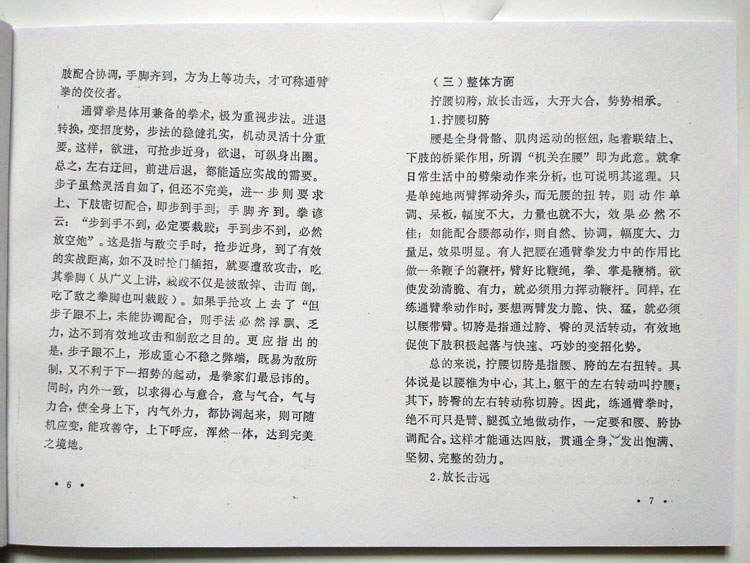 肢配合协调，手脚齐到，方为上等功夫，才可称通臂
拳的佼佼者。
通臂拳是体用兼备的拳术，极为重视步法。进退
转换，变招度势，步法的稳健扎实，机动灵活十分重
要。这样，欲进，可抢步近身；欲退，可纵身出圈。
总之，左右迂回，前进后退，都能适应实战的需要。
步子虽然灵活自如了，但还不完美，进一步则要求
上、下肢密切配合，即步到手到，手脚齐到。拳谚
云：“步到手不到，必定要栽跤；手到步不到，必然
放空炮”。这是指与敌交手时，抢步近身，到了有效
的实战距离，如不及时抢门插招，就要遭敌攻击，吃
其拳脚（从广义上讲，栽跤不仅是被敌摔、击而倒，
吃了敌之拳脚也叫栽跤）。如果手抢攻上去了“但
步子跟不上，未能协调配合，则手法必然浮飘、乏
力，达不到有效地攻击和制敌之目的。更应指出的
是，步子跟不上，形成重心不稳之弊端，既易为敌所
制，又不利于下一招势的起动，是拳家们最忌讳的。
同时，内外一致，以求得心与意合，意与气合，气与
力合，使全身上下，内气外力，都协调起来，则可随
机应变，能攻善守，上下呼应，浑然一体，达到完美
之境地。
• 6 •
（三）整体方面
拧腰切胯，放长击远，大开大合，势势相承。
1.拧腰切胯
腰是全身骨骼、肌肉运动的枢纽，起着联结上、
下肢的桥梁作用，所谓“机关在腰”即为此意。就拿
日常生活中的劈柴动作来分析，也可说明其道理。只
是单纯地两臂挥动斧头，而无腰的扭转，则动作单
调、呆板，幅度不大，力量也就不大，效果必然不
佳；如能配合腰部动作，则自然、协调，幅度大、力
量足，效果明显。有人把腰在通臂拳发力中的作用比
做一条鞭子的鞭杆，臂好比鞭绳，拳、掌是鞭梢。欲
使发劲清脆、有力，就必须用力挥动鞭杆。同样，在
练通臂拳动作时，要想两臂发力脆、快、猛，就必须
以腰带臂。切胯是指通过胯、臀的灵活转动，有效地
促使下肢积极起落与快速、巧妙的变招化势。
总的来说，拧腰切胯是指腰、胯的左右扭转。具
体说是以腰椎为中心，其上，躯干的左右转动叫拧腰；
其下，胯臀的左右转动称切胯。因此，练通臂拳时，
绝不可只是臂、腿孤立地做动作，一定要和腰、胯协
调配合。这样才能通达四肢，贯通全身，发出饱满、
坚韧、完整的劲力。
2.放长击远
• 7 •